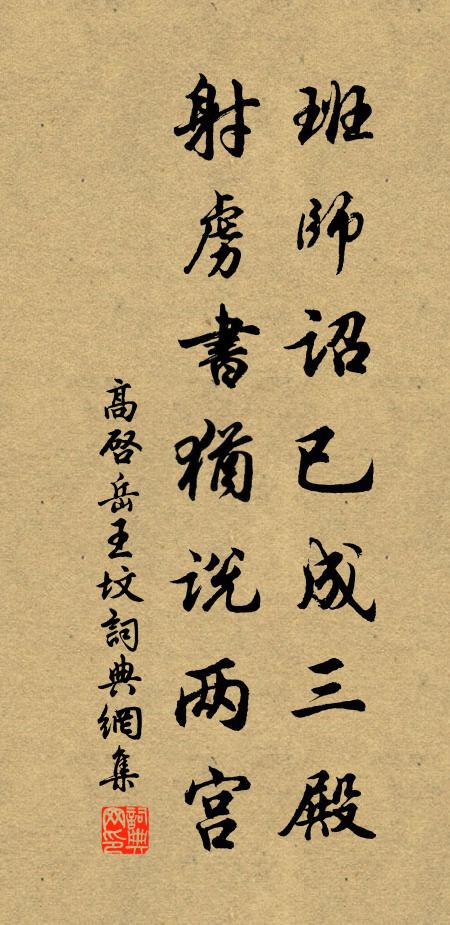 班師詔已成三殿
射虜書猶説两宫
高啓岳王坟詞典網集
詞典网印